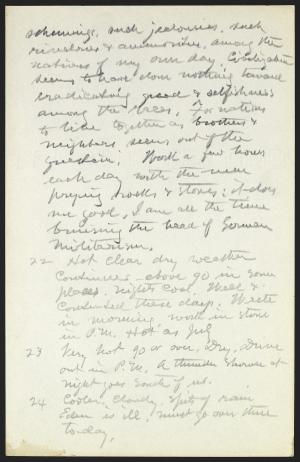 schemings, such jealousies, such
rivalries & animosities, among the
nations of my own day. Civilization
seems to have done nothing toward
eradicating greed & selfishness
among the races. For nations
to live together as brothers &
neighbors, seems out of the
question. Work a few hours
each day with the men
prying rocks & stones; it does
me good, I am all the time
bruising the head of German
Militarism.
22 Hot clear dry weather
continues - above 90 in some
places. Nights cool. Well &
contented these days. Write
in morning, work in stone
in P.M. Hot as July
23 Very hot 90 or over, Dry, Drive
out in P.M. A thunder shower at
night goes South of us.
24 Cooler, cloudy, spits of rain
Eden is ill, must go over there
to-day.